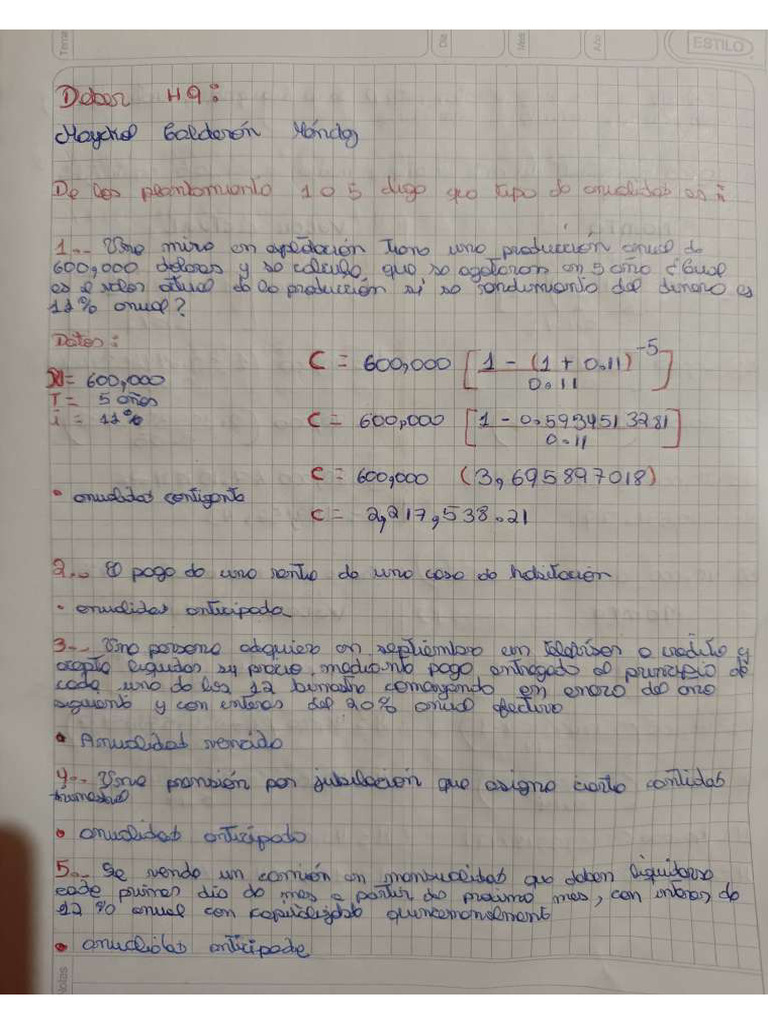 Tema
Dia
Mes
Año
ESTILO
Deber #9:
Maychol Calderón Méndez
De los planteamiento 1 a 5 diga que tipo de anualidas es:
1.- Una mina en explotación tiene una producción anual de
600,000 dólares y se calcula que se agotaron en 5 año ¿Cual
es el valor actual de la producción si se rendimiento del dinero es
11% anual?
Datos:
= 600,000
T = 5 años
i = 11%
C = 600,000 [1 - (1 + 0.11)^-5 / 0.11]
C = 600,000 [1 - 0.5934513281 / 0.11]
C = 600,000 (3,695897018)
• anualidas contigente
C = 2,217,538.21
2.- El pago de una renta de una casa de habitación
• anualidas anticipada
3.- Una persona adquiere en septiembre un televisor a credito y
acepta liquidar su precio, mediante pago entregado al principio de
cada uno de los 12 bimestre comenzando en enero del año
siguiente y con interes del 20% anual efectivo
• Anualidas vencida
4.- Una pension por jubilacion que asigna cierta cantidas
trimestral
• anualidas anticipada
5.- Se vende un camión en mensualidas que deben liquidarse
cada primer dia de mes a partir del proximo mes, con interes de
12% anual con capitalizas quincenalmente
• anualidas anticipada
Notas